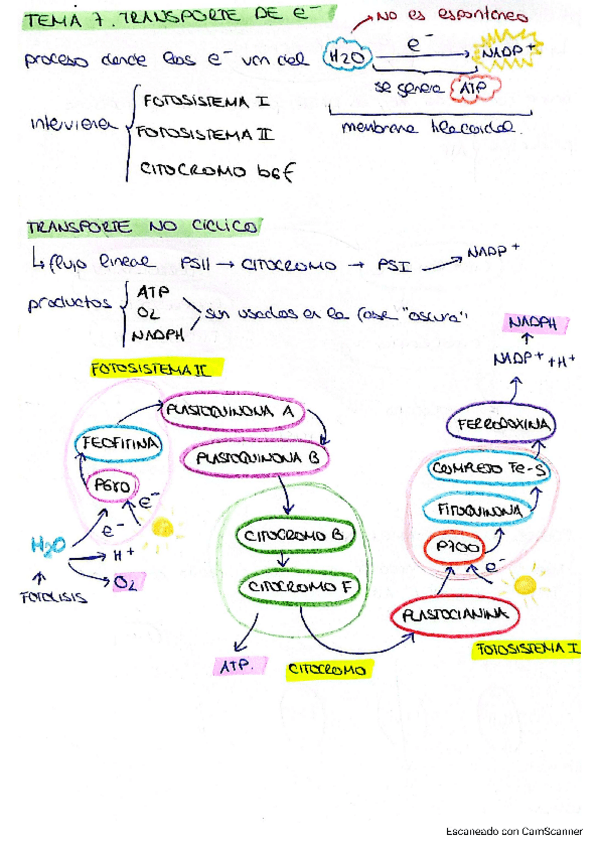 TEMA 7. TRANSPORTE DE e⁻
No es espontáneo
proceso donde los e⁻ van del H2O e⁻ NADP⁺
se genera ATP
membrana tilacoidal.
intervienen
FOTOSISTEMA I
FOTOSISTEMA II
CITOCROMO b6f
TRANSPORTE NO CICLICO
↳ flujo lineal PSII → CITOCROMO → PSI → NADP⁺
productos
ATP
O₂
NADPH
sin usados en la fase "oscura"
NADPH
NADP⁺ + H⁺
FOTOSISTEMA II
PLASTOQUINONA A
FERRODOXINA
FEOFITINA
PLASTOQUINONA B
COMPLEJO Fe-S
P680
FITOQUINONA
e⁻
e⁻
CITOCROMO B
P700
H2O
H⁺
e⁻
O₂
CITOCROMO F
FOTOLISIS
PLASTOCIANINA
ATP.
CITOCROMO
FOTOSISTEMA I
Escaneado con CamScanner